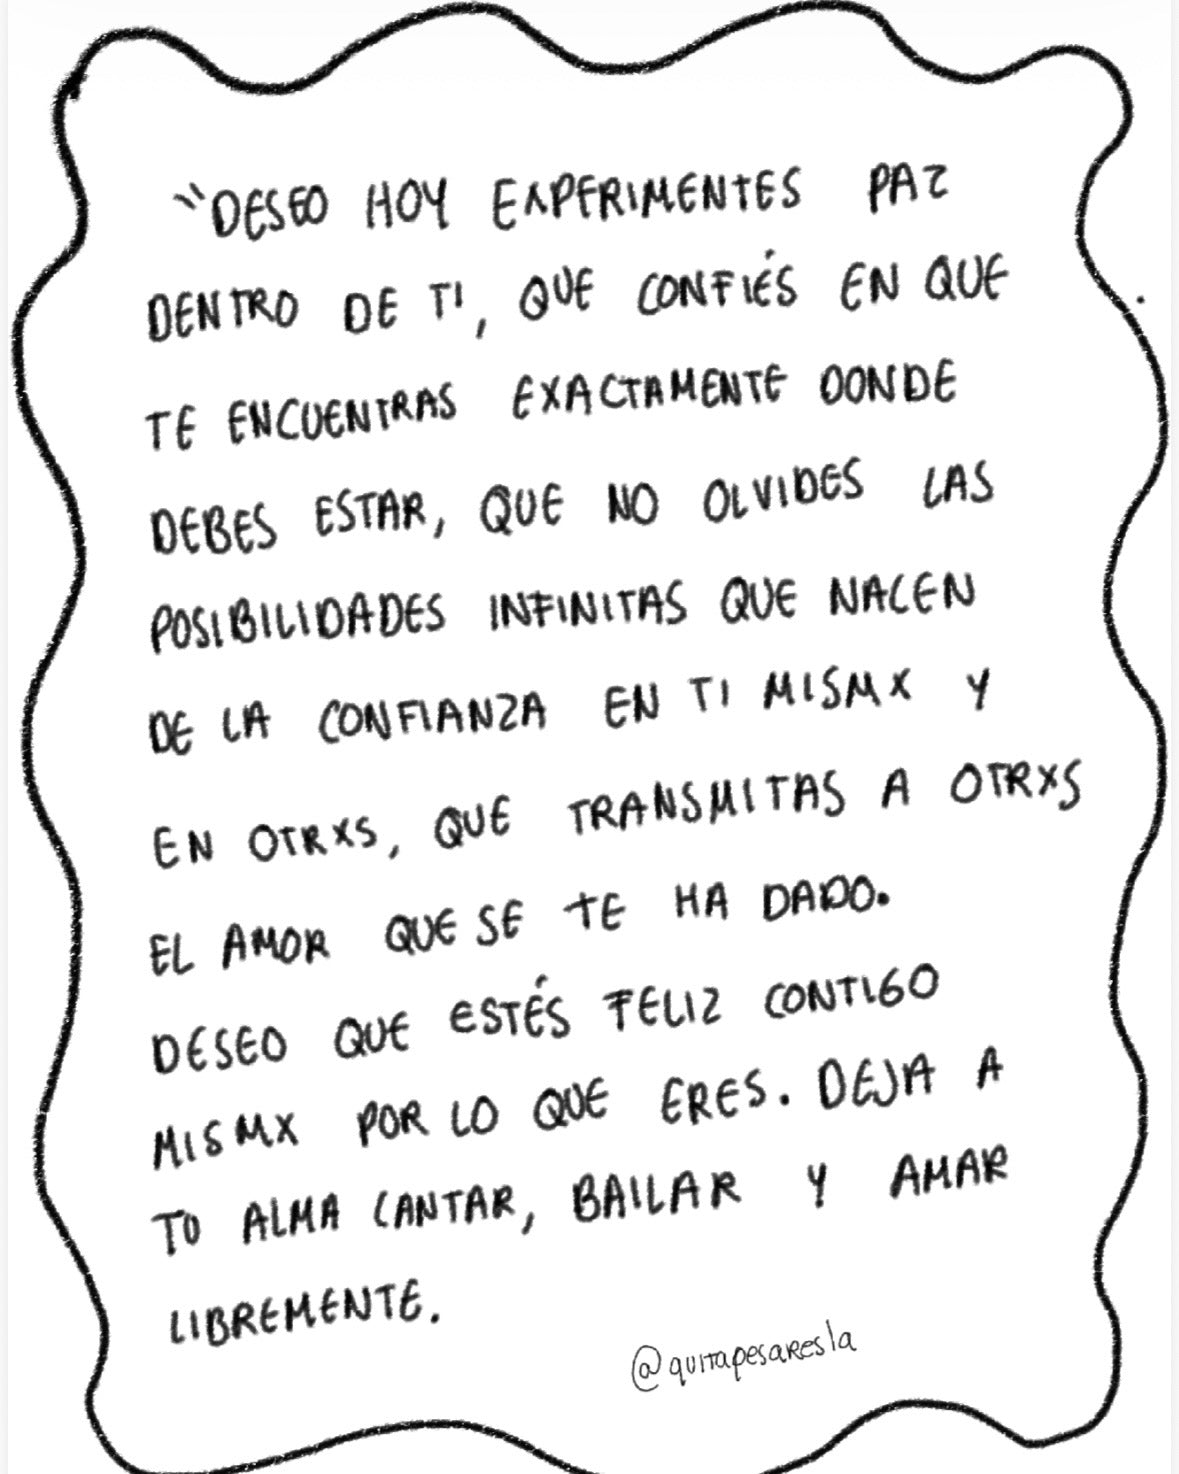 "DESEO HOY EXPERIMENTES PAZ
DENTRO DE TI, QUE CONFIÉS EN QUE
TE ENCUENTRAS EXACTAMENTE DONDE
DEBES ESTAR, QUE NO OLVIDES LAS
POSIBILIDADES INFINITAS QUE NACEN
DE LA CONFIANZA EN TI MISMX Y
EN OTRXS, QUE TRANSMITAS A OTRXS
EL AMOR QUE SE TE HA DADO.
DESEO QUE ESTÉS FELIZ CONTIGO
MISMX POR LO QUE ERES. DEJA A
TU ALMA CANTAR, BAILAR Y AMAR
LIBREMENTE.
@quitapesaresla